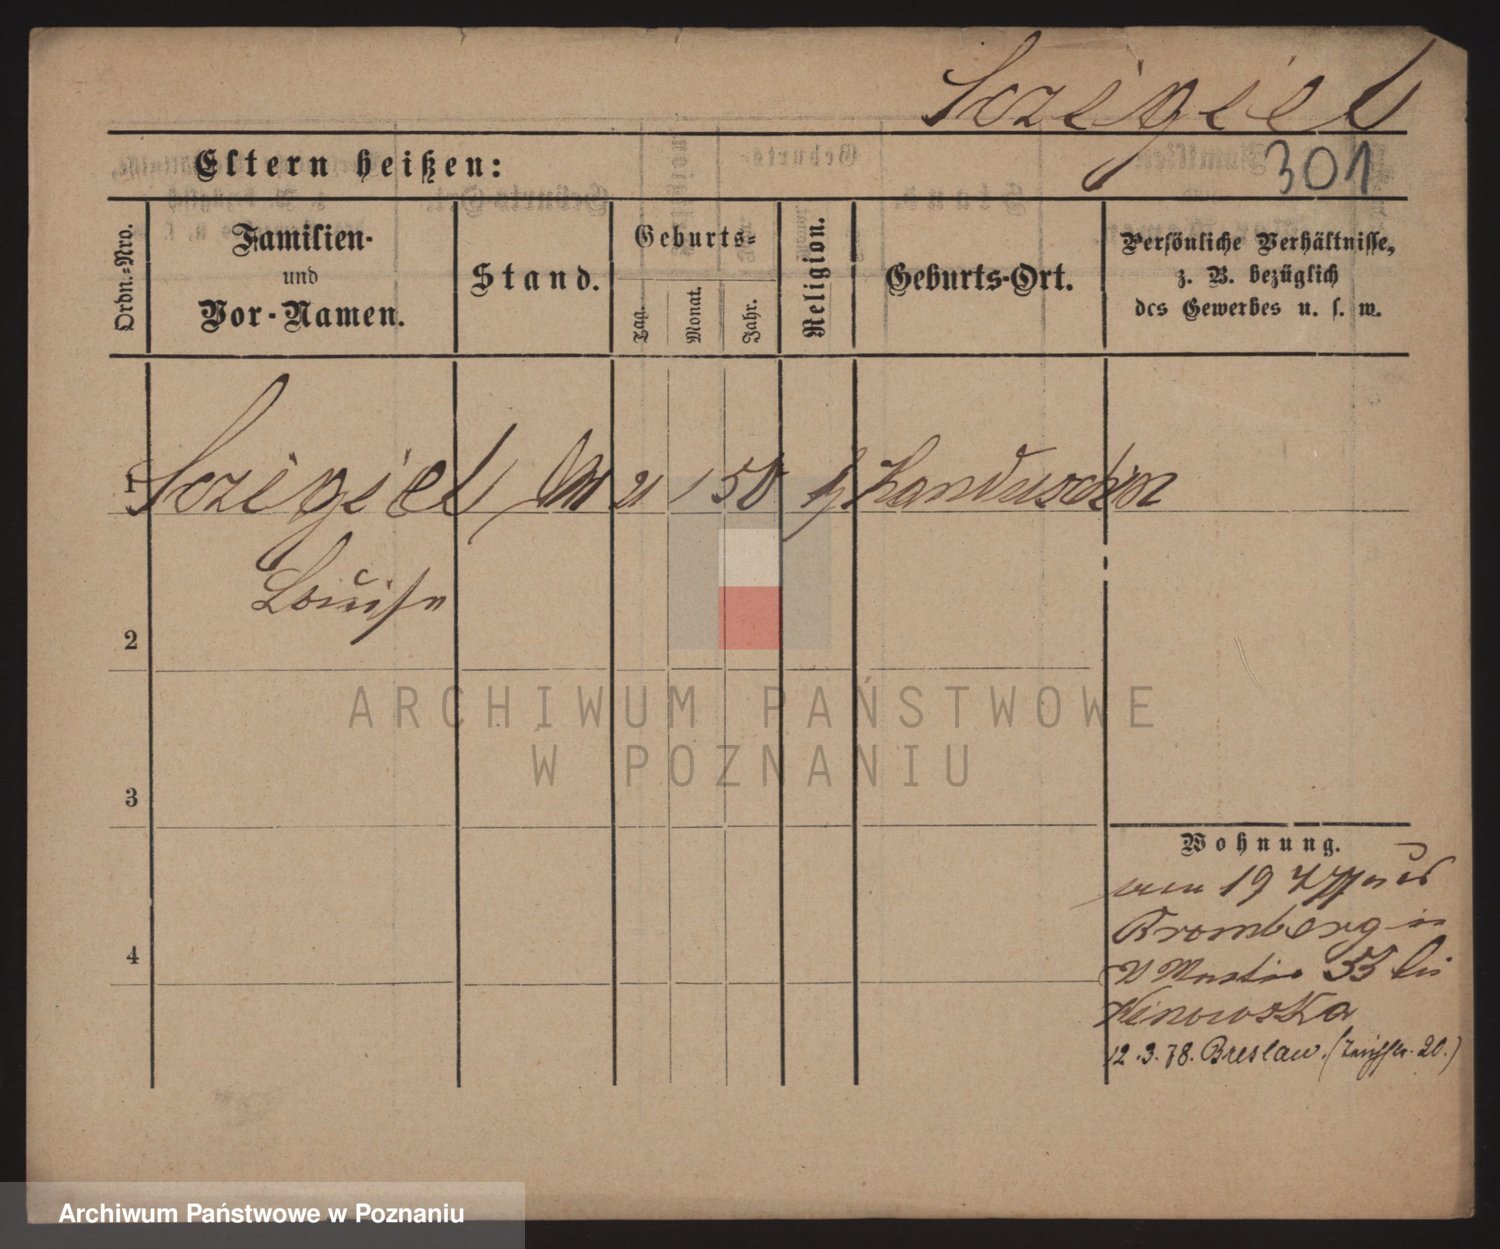 Sczigiel
Eltern heißen:
301
Ordn.=Nro.
Familien-
und
Vor-Namen.
Stand.
Geburts=
Tag.
Monat.
Jahr.
Religion.
Geburts-Ort.
Persönliche Verhältnisse,
z. B. bezüglich
des Gewerbes u. s. w.
1
Sczigiel
21
1
50
Kanduschin
Louise
2
3
4
Wohnung.
19
Bromberg in
53 bei
12.3.78. Breslau. 20.)
ARCHIWUM PAŃSTWOWE
W POZNANIU
Archiwum Państwowe w Poznaniu